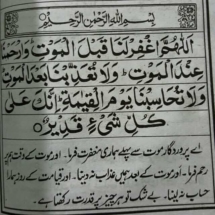 بِسْمِ اللّٰهِ الرَّحْمٰنِ الرَّحِيْمِ
اَللّٰهُمَّ اغْفِرْلَنَا قَبْلَ الْمَوْتِ وَارْحَمْنَا
عِنْدَ الْمَوْتِ وَلَا تُعَذِّبْنَا بَعْدَ الْمَوْتِ
وَلَا تُحَاسِبْنَا يَوْمَ الْقِيٰمَةِ اِنَّكَ عَلٰى
كُلِّ شَىْءٍ قَدِيْرٌ
اے پروردگار موت سے پہلے ہماری مغفرت فرما۔ اور موت کے وقت ہم پر
رحم فرما۔ اور موت کے بعد ہمیں عذاب نہ دینا۔ اور قیامت کے روز ہمارا
حساب نہ لینا۔ بے شک تو ہر چیز پر قدرت رکھتا ہے۔